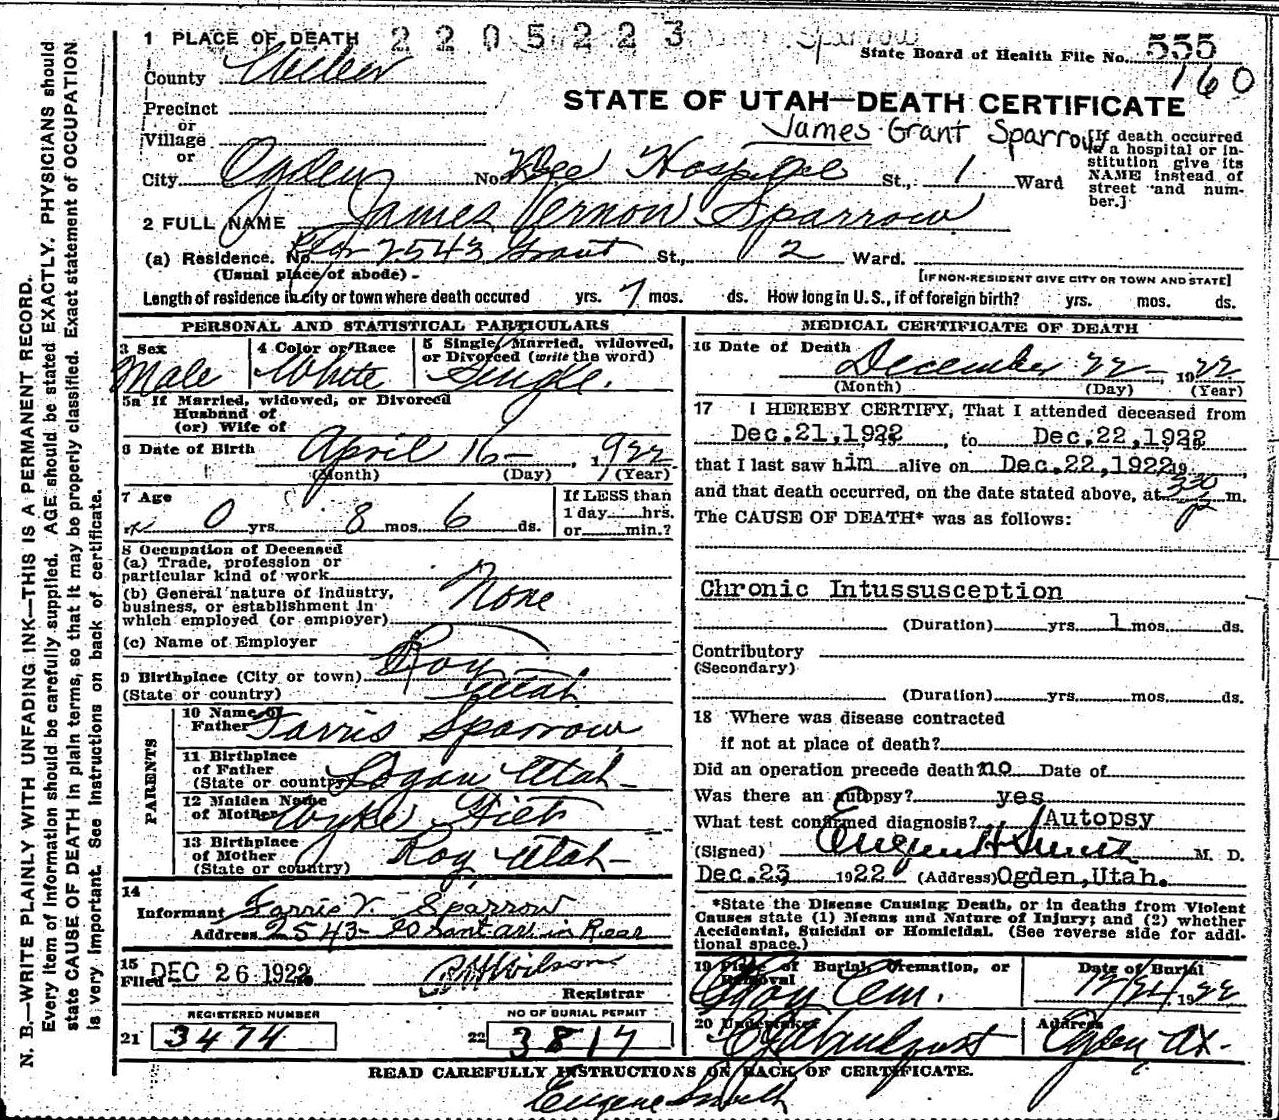 N. B.—WRITE PLAINLY WITH UNFADING INK—THIS IS A PERMANENT RECORD.
Every item of information should be carefully supplied. AGE should be stated EXACTLY. PHYSICIANS should
state CAUSE OF DEATH in plain terms, so that it may be properly classified. Exact statement of OCCUPATION
is very important. See Instructions on back of certificate.
1 PLACE OF DEATH 2205223 Sparrow
State Board of Health File No. 555
160
County Weber
Precinct
or
Village
or
STATE OF UTAH—DEATH CERTIFICATE
James Grant Sparrow
[If death occurred in a hospital or institution give its NAME instead of street and number.]
City Ogden No. Dee Hospital St., 1 Ward
2 FULL NAME James Vernon Sparrow
(a) Residence. No. 2543 Grant St., 2 Ward.
(Usual place of abode) [IF NON-RESIDENT GIVE CITY OR TOWN AND STATE]
Length of residence in city or town where death occured yrs. 7 mos. ds. How long in U. S., if of foreign birth? yrs. mos. ds.
PERSONAL AND STATISTICAL PARTICULARS
3 Sex Male
4 Color or Race White
5 Single, Married, widowed, or Divorced (write the word) Single.
5a If Married, widowed, or Divorced
Husband of
(or) Wife of
6 Date of Birth April 16- , 1922
(Month) (Day) (Year)
7 Age 0 yrs. 8 mos 6 ds.
If LESS than
1 day hrs.
or min.?
8 Occupation of Deceased
(a) Trade, profession or
particular kind of work
(b) General nature of industry,
business, or establishment in
which employed (or employer) None
(c) Name of Employer
9 Birthplace (City or town) Roy
(State or country) Utah
PARENTS
10 Name of Father Farris Sparrow
11 Birthplace
of Father
(State or country) Logan Utah
12 Maiden Name
of Mother
13 Birthplace
of Mother
(State or country) Roy Utah
14
Informant Farris V. Sparrow
Address 2543 Grant in Rear
15
Filed DEC 26 1922 Wilson
Registrar
REGISTERED NUMBER
21 3474
NO OF BURIAL PERMIT
22 3817
MEDICAL CERTIFICATE OF DEATH
16 Date of Death December 22 1922
(Month) (Day) (Year)
17 I HEREBY CERTIFY, That I attended deceased from
Dec.21,1922, to Dec.22,1922
that I last saw him alive on Dec.22,1922 19
and that death occurred, on the date stated above, at 330 P m.
The CAUSE OF DEATH* was as follows:
Chronic Intussusception
(Duration) yrs. 1 mos. ds.
Contributory
(Secondary)
(Duration) yrs. mos. ds.
18 Where was disease contracted
if not at place of death?
Did an operation precede death no Date of
Was there an autopsy? yes
What test confirmed diagnosis? Autopsy
(Signed) Eugene H Smith M. D.
Dec.23 1922 (Address) Ogden,Utah.
*State the Disease Causing Death, or in deaths from Violent
Causes state (1) Means and Nature of Injury; and (2) whether
Accidental, Suicidal or Homicidal. (See reverse side for addi-
tional space.)
19 Place of Burial, Cremation, or
Removal
Roy Cem.
Date of Burial
12/24 1922
20 Undertaker
Address
Ogden
READ CAREFULLY INSTRUCTIONS ON BACK OF CERTIFICATE.
Eugene Smith